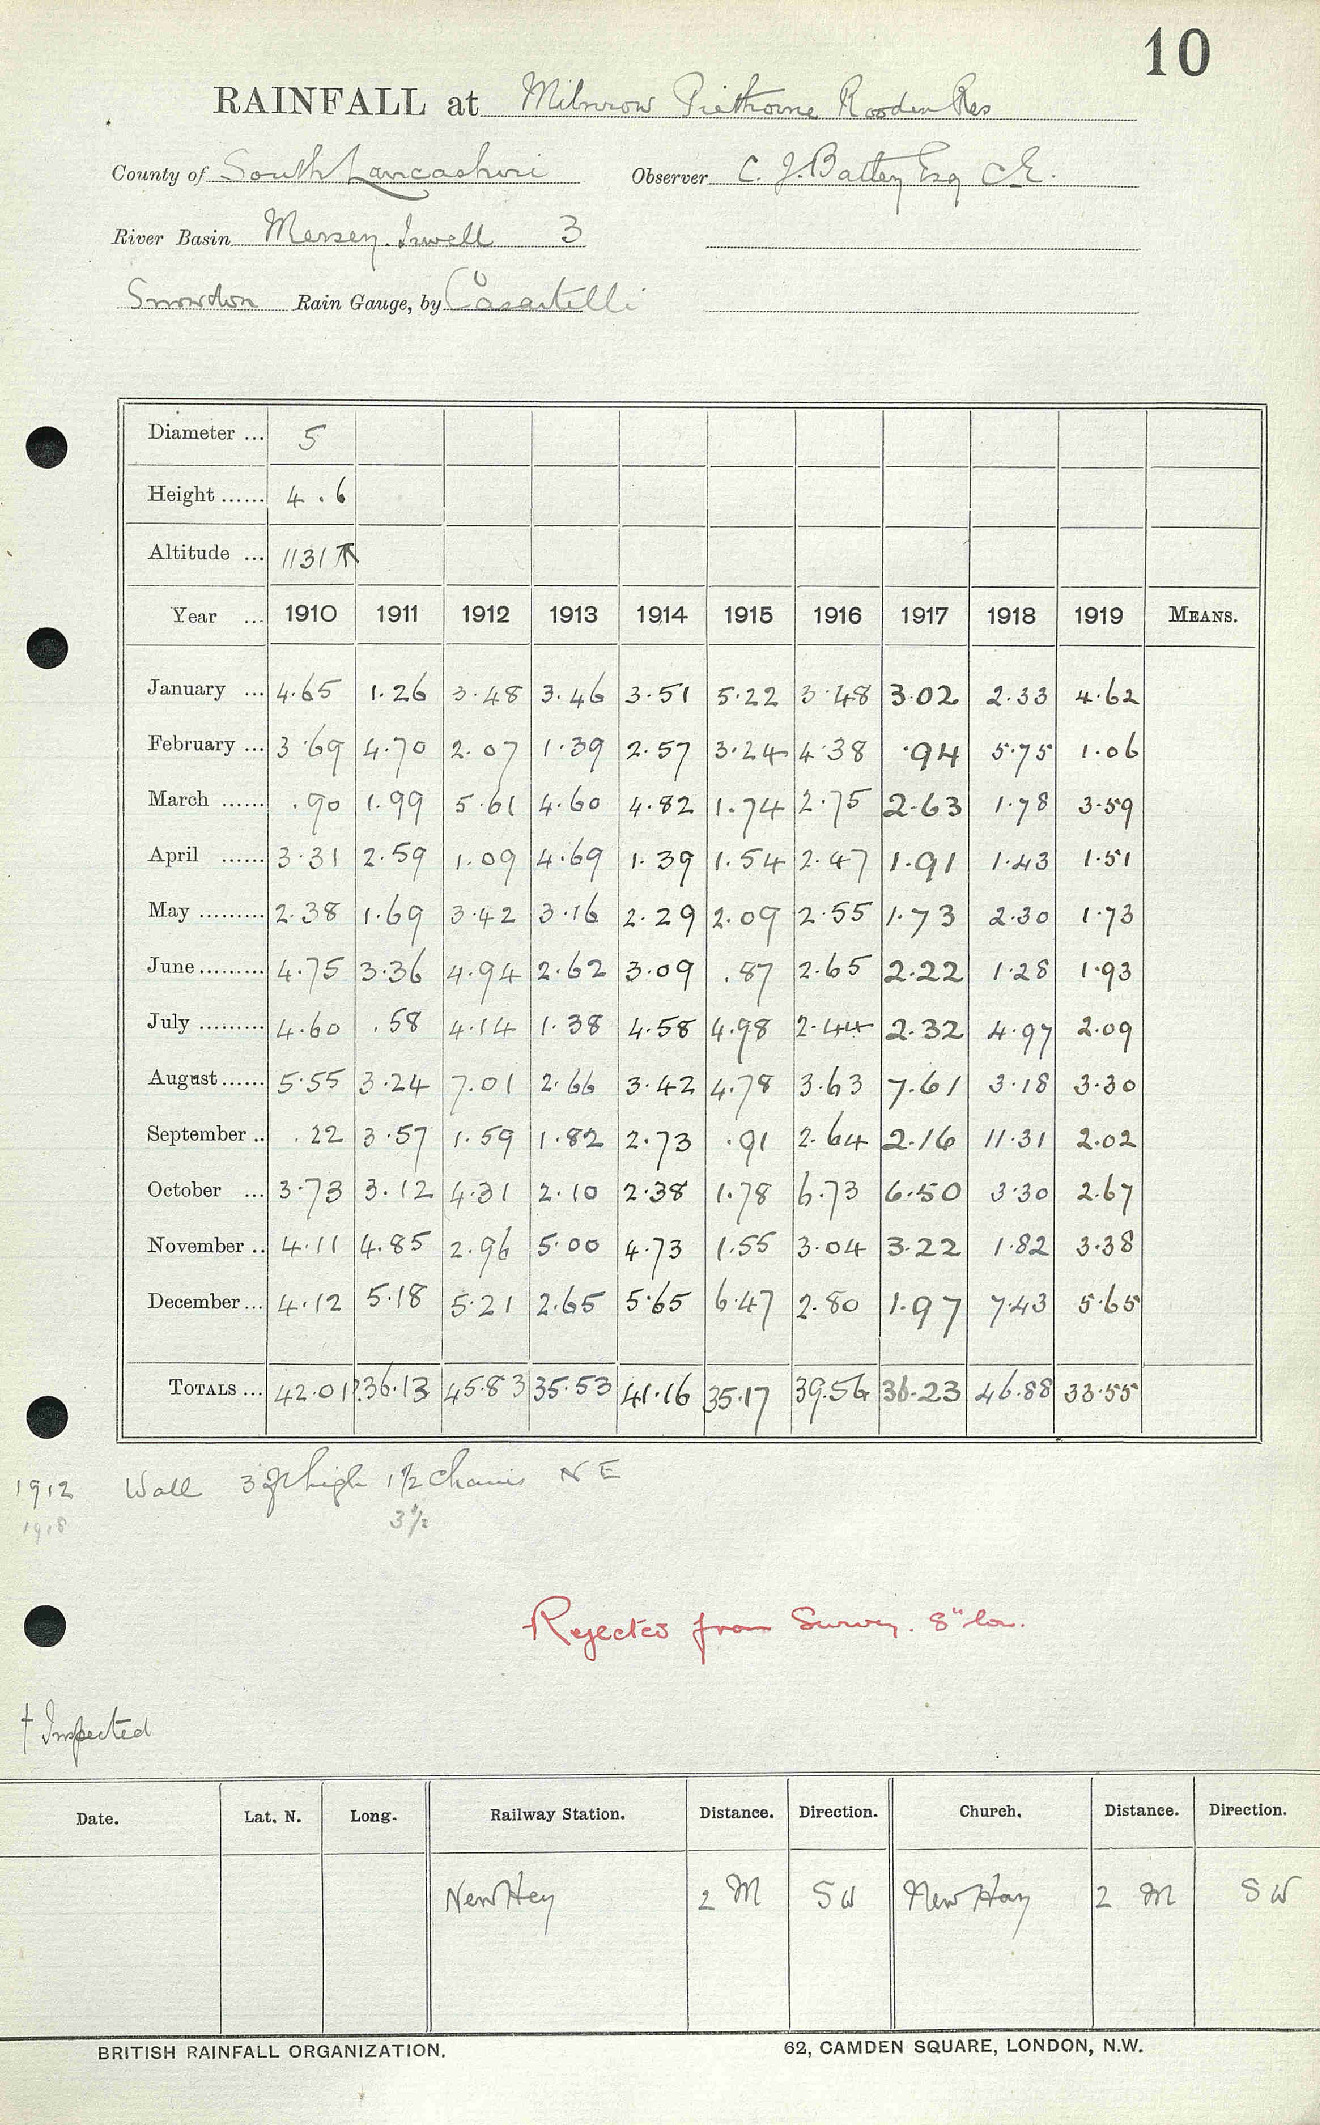 10
RAINFALL at Milnrow Piethorne Rooden Res
County of South Lancashire Observer C. J. Batley Esq C.E.
River Basin Mersey. Irwell 3
Snowdon Rain Gauge, by Casartelli
Diameter ... 5
Height ...... 4.6
Altitude ... 1131 ↑
Year ... 1910 1911 1912 1913 1914 1915 1916 1917 1918 1919 MEANS.
January ... 4.65 1.26 3.48 3.46 3.51 5.22 3.48 3.02 2.33 4.62
February ... 3.69 4.70 2.07 1.39 2.57 3.24 4.38 .94 5.75 1.06
March ...... .90 1.99 5.61 4.60 4.82 1.74 2.75 2.63 1.78 3.59
April ...... 3.31 2.59 1.09 4.69 1.39 1.54 2.47 1.91 1.43 1.51
May ......... 2.38 1.69 3.42 3.16 2.29 2.09 2.55 1.73 2.30 1.73
June ......... 4.75 3.36 4.94 2.62 3.09 .87 2.65 2.22 1.28 1.93
July ......... 4.60 .58 4.14 1.38 4.58 4.98 2.44 2.32 4.97 2.09
August ...... 5.55 3.24 7.01 2.66 3.42 4.78 3.63 7.61 3.18 3.30
September .. .22 3.57 1.59 1.82 2.73 .91 2.64 2.16 11.31 2.02
October ... 3.73 3.12 4.31 2.10 2.38 1.78 6.73 6.50 3.30 2.67
November .. 4.11 4.85 2.96 5.00 4.73 1.55 3.04 3.22 1.82 3.38
December ... 4.12 5.18 5.21 2.65 5.65 6.47 2.80 1.97 7.43 5.65
TOTALS ... 42.01? 36.13 45.83 35.53 41.16 35.17 39.56 36.23 46.88 33.55
1912 Wall 3 ft high 1 1/2 chains N E
1918 3 1/2
Rejected from Survey. 8" low.
† Inspected
Date. Lat. N. Long. Railway Station. Distance. Direction. Church. Distance. Direction.
New Hey 2 M SW New Hay 2 M SW
BRITISH RAINFALL ORGANIZATION. 62, CAMDEN SQUARE, LONDON, N.W.